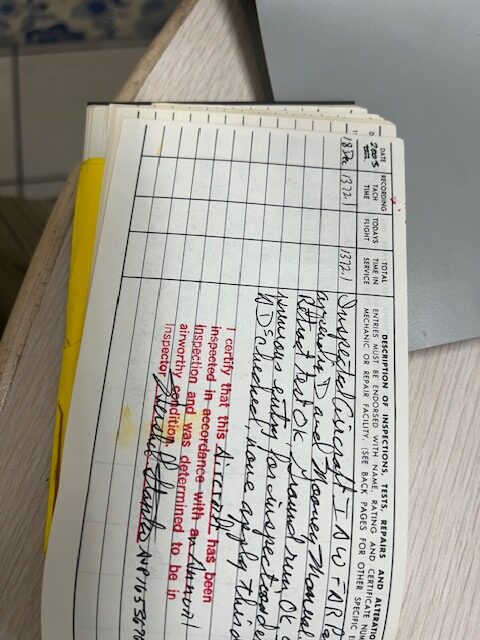 DESCRIPTION OF INSPECTIONS, TESTS, REPAIRS AND ALTERA
ENTRIES MUST BE ENDORSED WITH NAME, RATING AND CERTIFICATE NUM
MECHANIC OR REPAIR FACILITY. (SEE BACK PAGES FOR OTHER SPECIFIC E
DATE
RECORDING TACH TIME
TODAYS FLIGHT
TOTAL TIME IN SERVICE
2003
18 Dec 1372.1 1372.1 Inspected aircraft I A W FAR
appendix D and Mooney Manual
Retract test OK ground run OK
previous entry for inspection
AD's checked, none apply this
I certify that this Aircraft has been
inspected in accordance with an Annual
inspection and was determined to be in
airworthy condition
Inspector